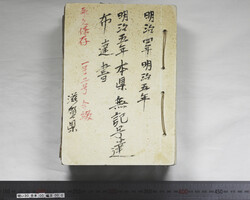 明治四年明治五年
明治五年 本県無記号達
布達書
永久保存
滋賀県